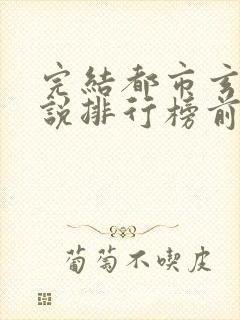 完結都市玄
說排行榜前
葡萄不喫皮